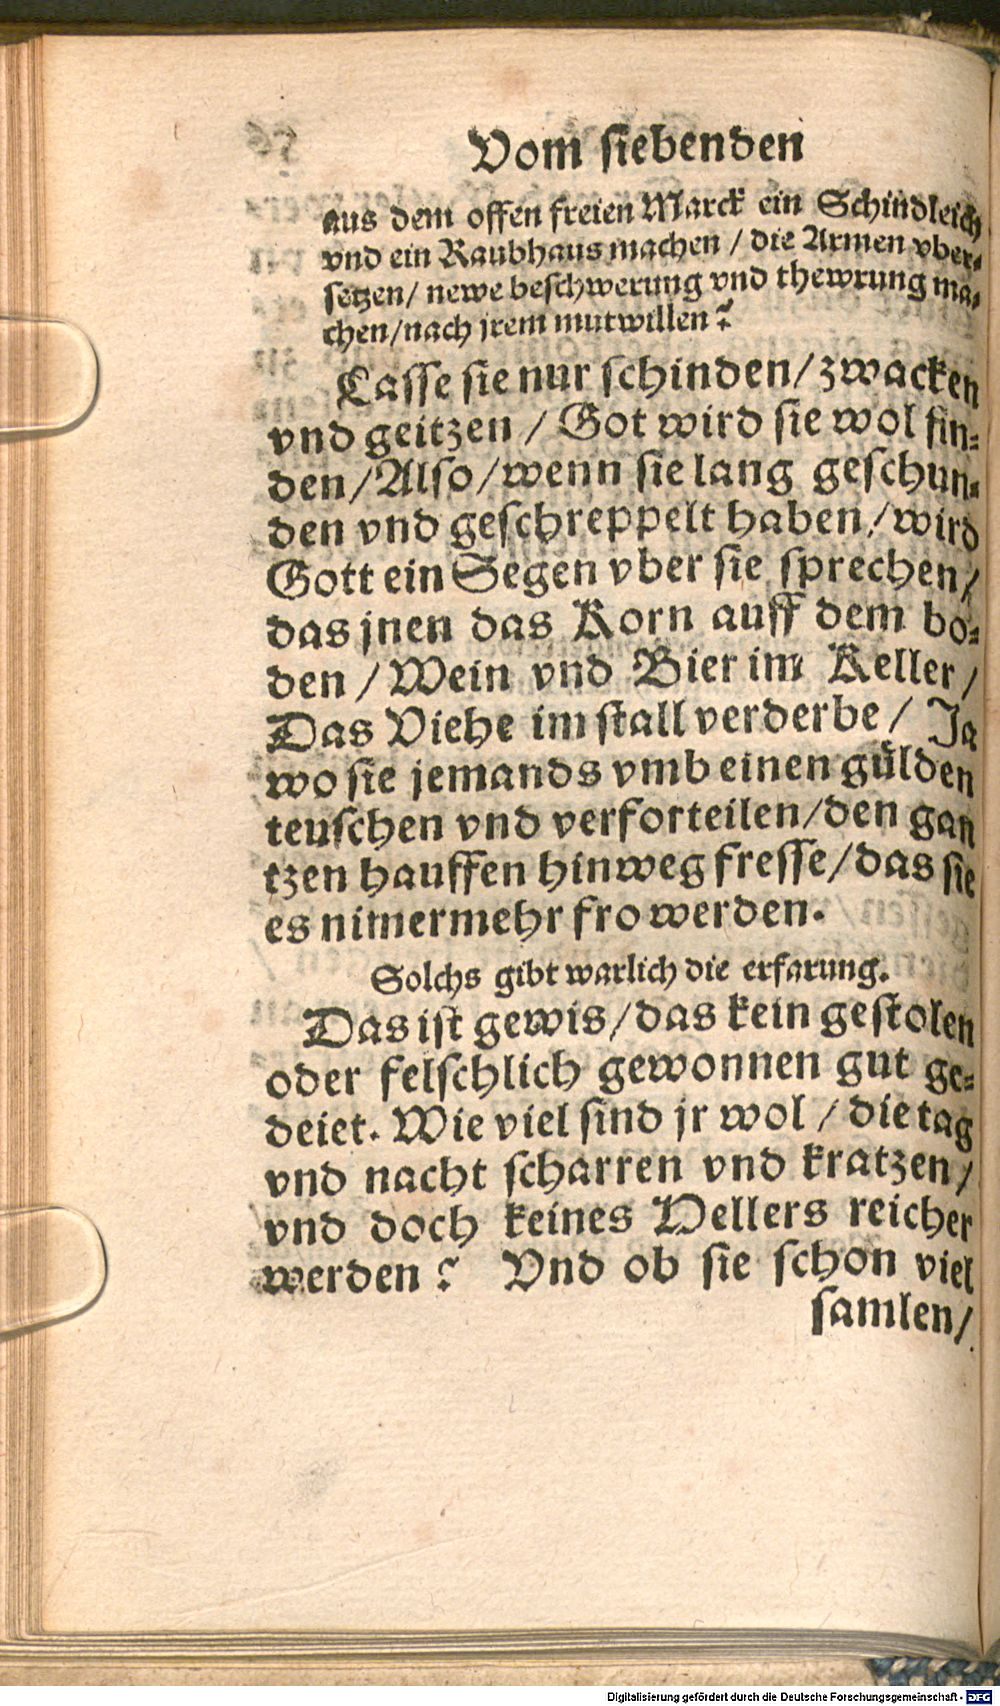 Vom siebenden
aus dem offen freien Marck ein Schindleich
vnd ein Raubhaus machen / die Armen vber-
setzen / newe beschwerung vnd thewrung ma-
chen / nach jrem mutwillen?
Lasse sie nur schinden / zwacken
vnd geitzen / Got wird sie wol fin-
den / Also / wenn sie lang geschun-
den vnd geschreppelt haben / wird
Gott ein Segen vber sie sprechen /
das jnen das Korn auff dem bo-
den / Wein vnd Bier im Keller /
Das Viehe im stall verderbe / Ja
wo sie jemands vmb einen gülden
teuschen vnd verforteilen / den gan
tzen hauffen hinweg fresse / das sie
es nimermehr fro werden.
Solchs gibt warlich die erfarung.
Das ist gewis / das kein gestolen
oder felschlich gewonnen gut ge-
deiet. Wie viel sind jr wol / die tag
vnd nacht scharren vnd kratzen /
vnd doch keines Hellers reicher
werden? Vnd ob sie schon viel
samlen /
Digitalisierung gefördert durch die Deutsche Forschungsgemeinschaft - DFG